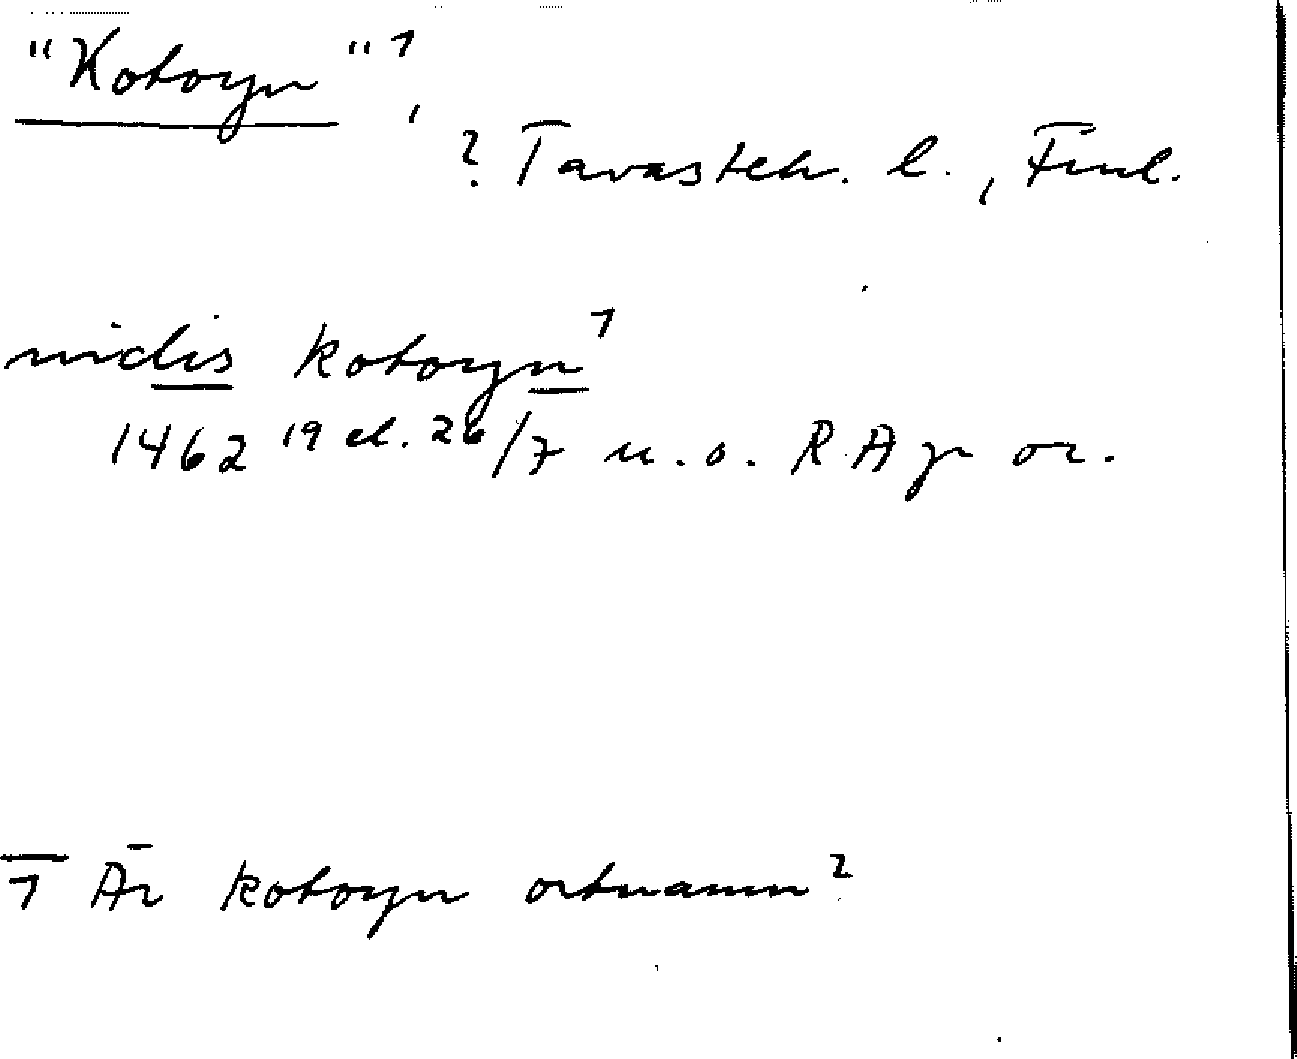 "Kotoyn"¹,
? Tavasteh. l., Finl.
nidis kotoyn¹
1462 19 el. 26/7 u.o. RAp or.
1 Är kotoyn ortnamn?